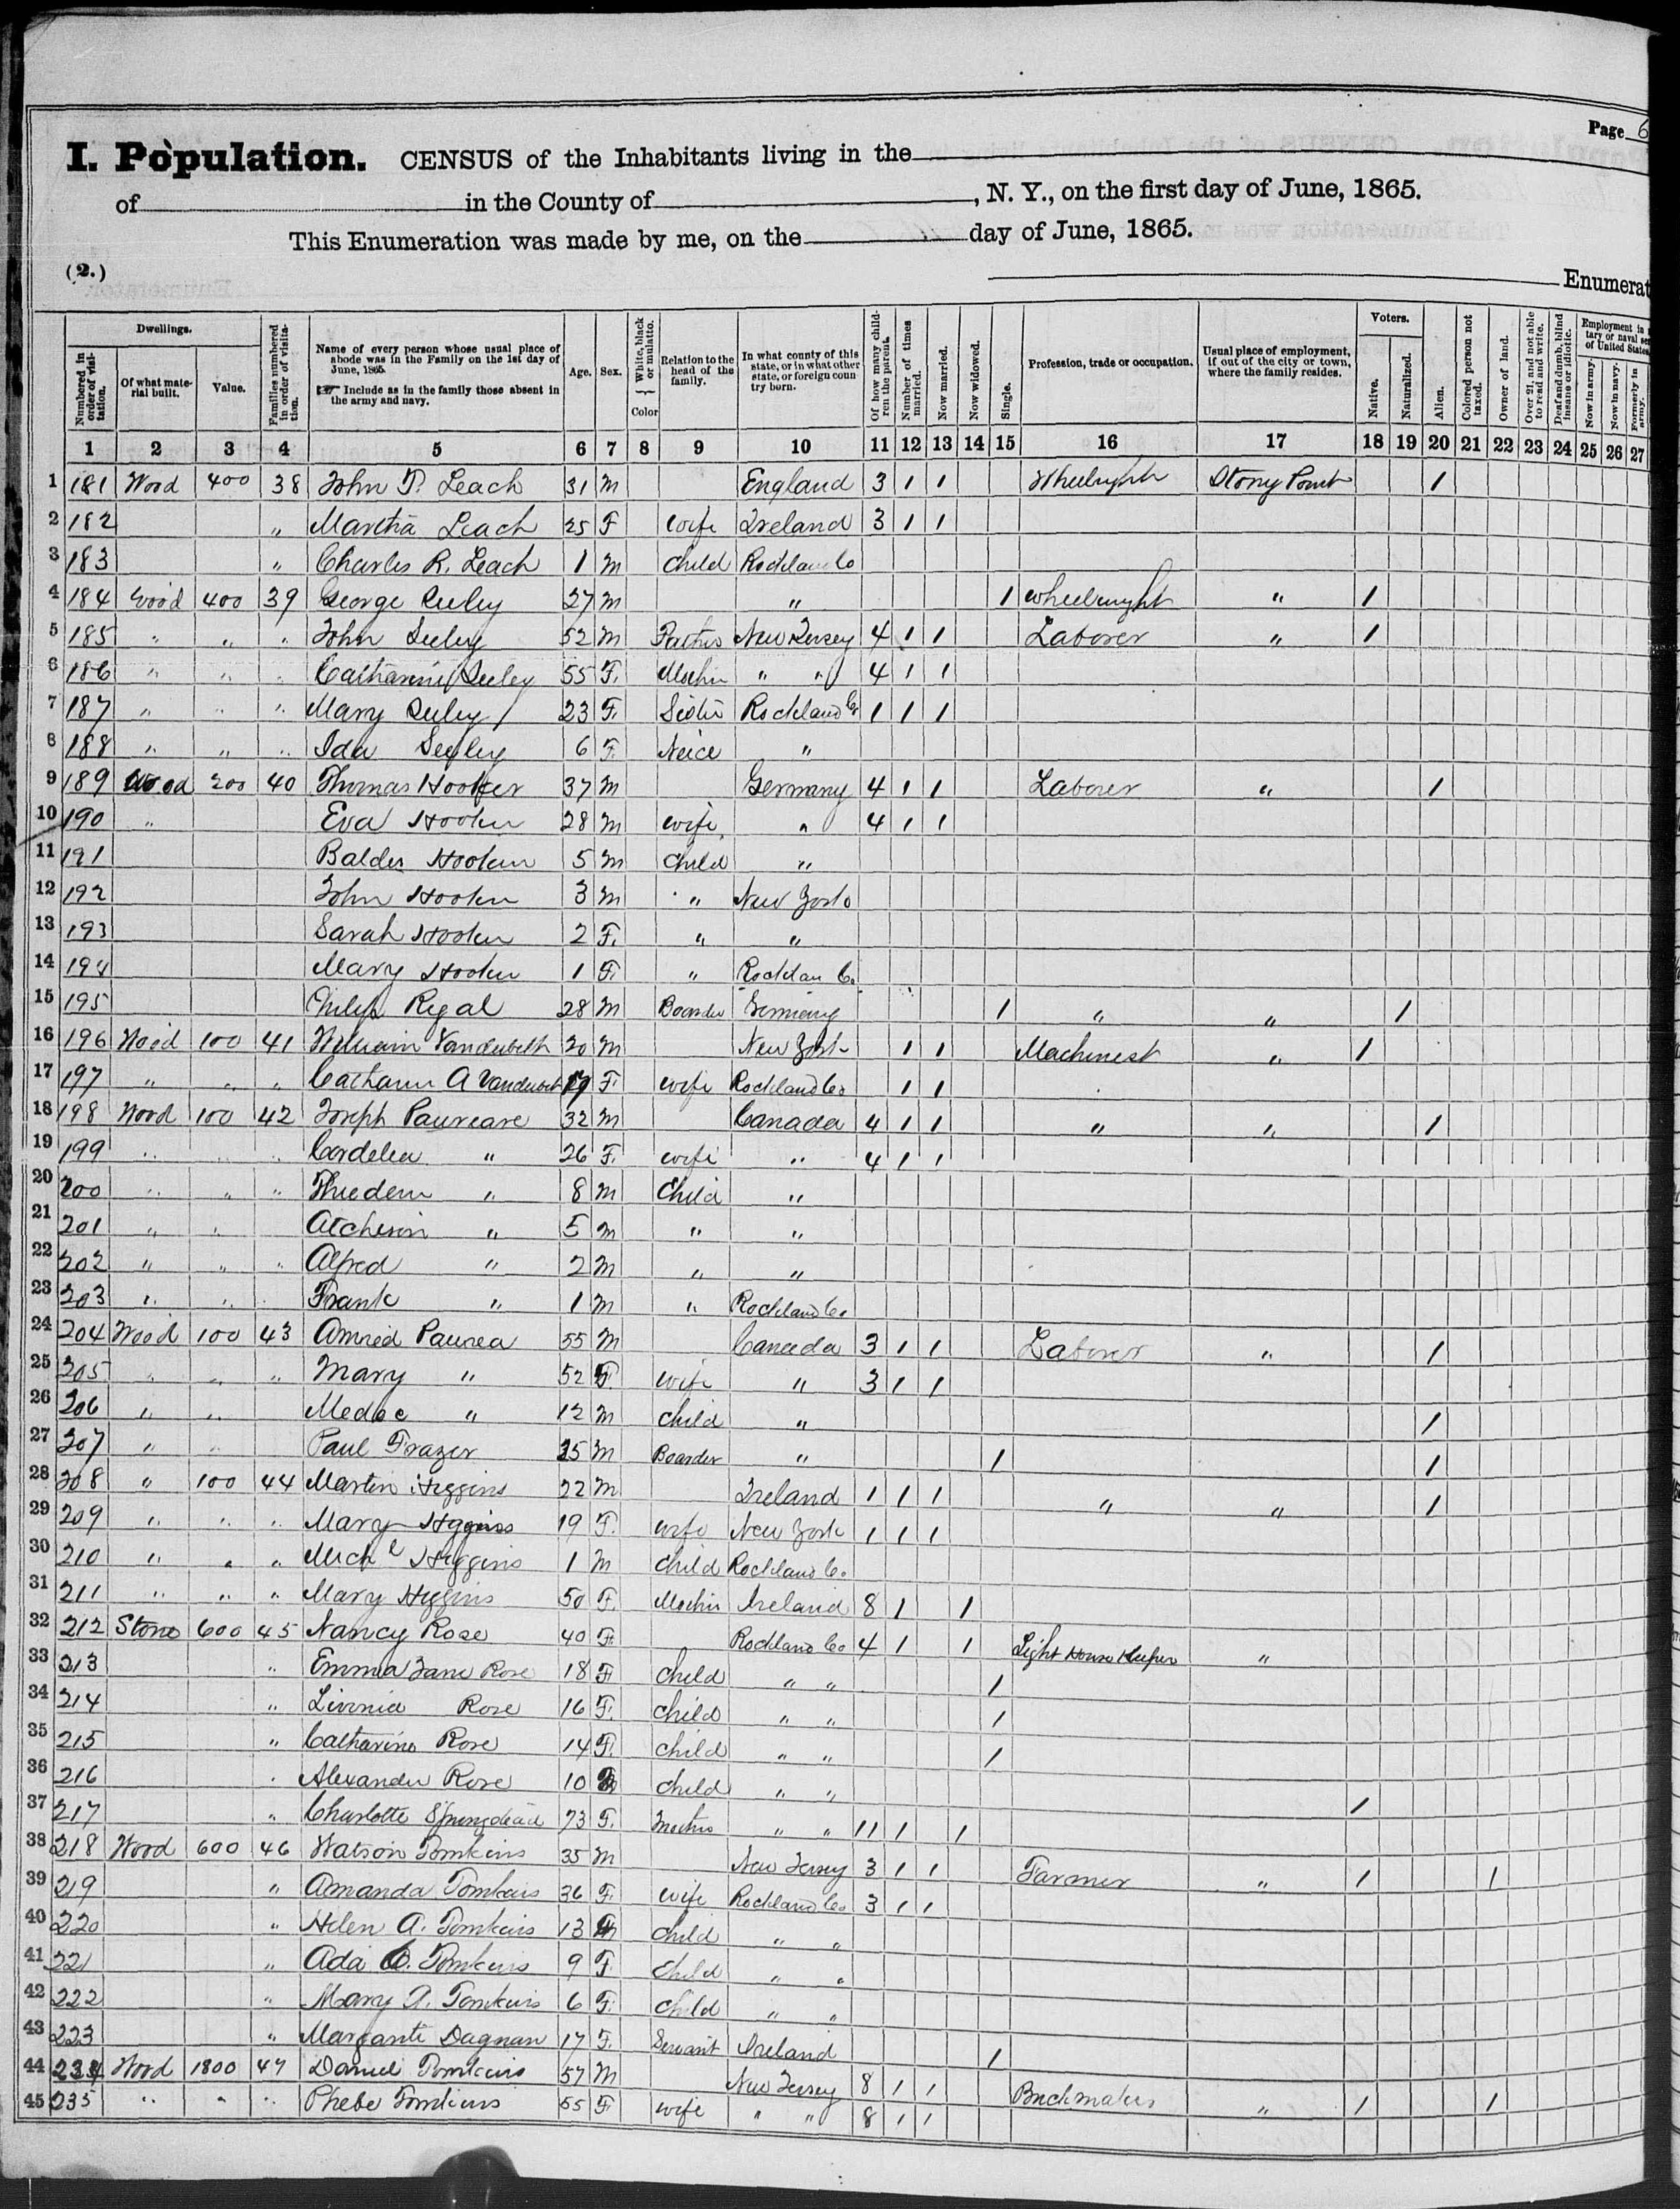 Page 6
I. Population. CENSUS of the Inhabitants living in the
of in the County of , N. Y., on the first day of June, 1865.
This Enumeration was made by me, on the day of June, 1865.
(2.)
Enumerat
Dwellings. Voters. Employment in
Numbered in order of visitation. Of what material built. Value. Families numbered in order of visitation. Name of every person whose usual place of abode was in the Family on the 1st day of June, 1865. Include as in the family those absent in the army and navy. Age. Sex. White, black or mulatto. Color Relation to the head of the family. In what county of this state, or in what other state, or foreign country born. Of how many children the parent. Number of times married. Now married. Now widowed. Single. Profession, trade or occupation. Usual place of employment, if out of the city or town, where the family resides. Native. Naturalized. Alien. Colored person not taxed. Owner of land. Over 21, and not able to read and write. Deaf and dumb, blind insane or idiotic. tary or naval ser of United States. Now in army. Now in navy. Formerly in army.
1 2 3 4 5 6 7 8 9 10 11 12 13 14 15 16 17 18 19 20 21 22 23 24 25 26 27
1 181 Wood 400 38 John P. Leach 31 M England 3 1 1 Wheelright Stony Point 1
2 182 " Martha Leach 25 F wife Ireland 3 1 1
3 183 " Charles R. Leach 1 M child Rockland Co
4 184 Wood 400 39 George Seeley 27 M " 1 wheelwright " 1
5 185 " " " John Seeley 52 M Father New Jersey 4 1 1 Laborer " 1
6 186 " " " Catharine Seeley 55 F. Mother " " 4 1 1
7 187 " " " Mary Seeley 23 F. Sister Rockland Co 1 1 1
8 188 " " " Ida Seeley 6 F. Neice "
9 189 Wood 200 40 Thomas Hooker 37 M Germany 4 1 1 Laborer " 1
10 190 " Eva Hooker 28 M wife " 4 1 1
11 191 Balder Hooker 5 M child "
12 192 John Hooker 3 M " New York
13 193 Sarah Hooker 2 F. " "
14 194 Mary Hooker 1 F. " Rocklan C.
15 195 Philip Regal 28 M Boarder Germany 1 " " 1
16 196 Wood 100 41 William Vanderbelt 20 M New York 1 1 Machinest " 1
17 197 " " " Catharin A Vanderbelt 19 F. wife Rockland Co 1 1
18 198 Wood 100 42 Joseph Paureare 32 M Canada 4 1 1 " " 1
19 199 " " " Cordelia " 26 F. wife " 4 1 1
20 200 " " " " 8 M Child "
21 201 " " Atcheson " 5 M " "
22 202 " " " Alfred " 2 M " "
23 203 " " Frank " 1 M " Rockland Co.
24 204 Wood 100 43 Paurea 55 M Caneda 3 1 1 Laborer " 1
25 205 " " " Mary " 52 F. wife " 3 1 1
26 206 " " " 12 M child " 1
27 207 " " Paul Frazer 25 M Boarder " 1 1
28 208 " 100 44 Martin Higgins 22 M Ireland 1 1 1 " " 1
29 209 " " " Mary Higgins 19 F. wife New York 1 1 1
30 210 " " " Michl Higgins 1 M child Rockland Co.
31 211 " " " Mary Higgins 50 F. Mother Ireland 8 1 1
32 212 Stone 600 45 Nancy Rose 40 F. Rockland Co 4 1 1 Light House Keeper "
33 213 " Emma Jane Rose 18 F child " " 1
34 214 " Livinia Rose 16 F. child " " 1
35 215 " Catharine Rose 14 F. child " " 1
36 216 " Alexander Rose 10 child " "
37 217 " Charlotte 73 F. Mother " " 11 1 1 1
38 218 Wood 600 46 Watson Tomkins 35 M New Jersey 3 1 1 Farmer " 1 1
39 219 " Amanda Tomkins 36 F. wife Rockland Co 3 1 1
40 220 " Helen A. Tomkins 13 child " "
41 221 " Ada Tomkins 9 F child " "
42 222 " Mary A. Tomkins 6 F. child " "
43 223 " Margaret Dagnan 17 F. Servant Ireland 1
44 234 Wood 1800 47 Daniel Tomkins 57 M New Jersey 8 1 1 Brickmaker " 1 1
45 235 " " " Phebe Tomkins 55 F wife " " 8 1 1